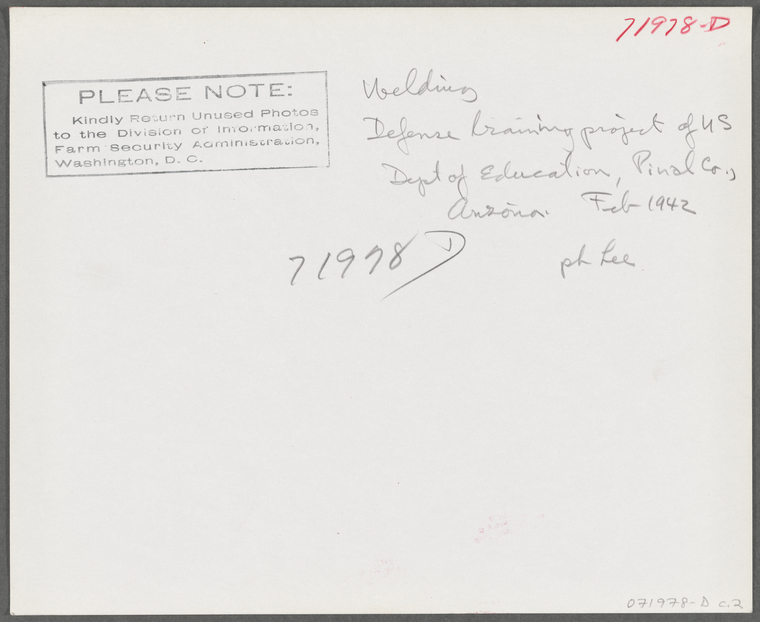 71978-D
PLEASE NOTE:
Kindly Return Unused Photos
to the Division of Information,
Farm Security Administration,
Washington, D. C.
Welding
Defense training project of US
Dept of Education, Pinal Co.,
Arizona. Feb 1942
71978 D
ph Lee
071978-D c.2